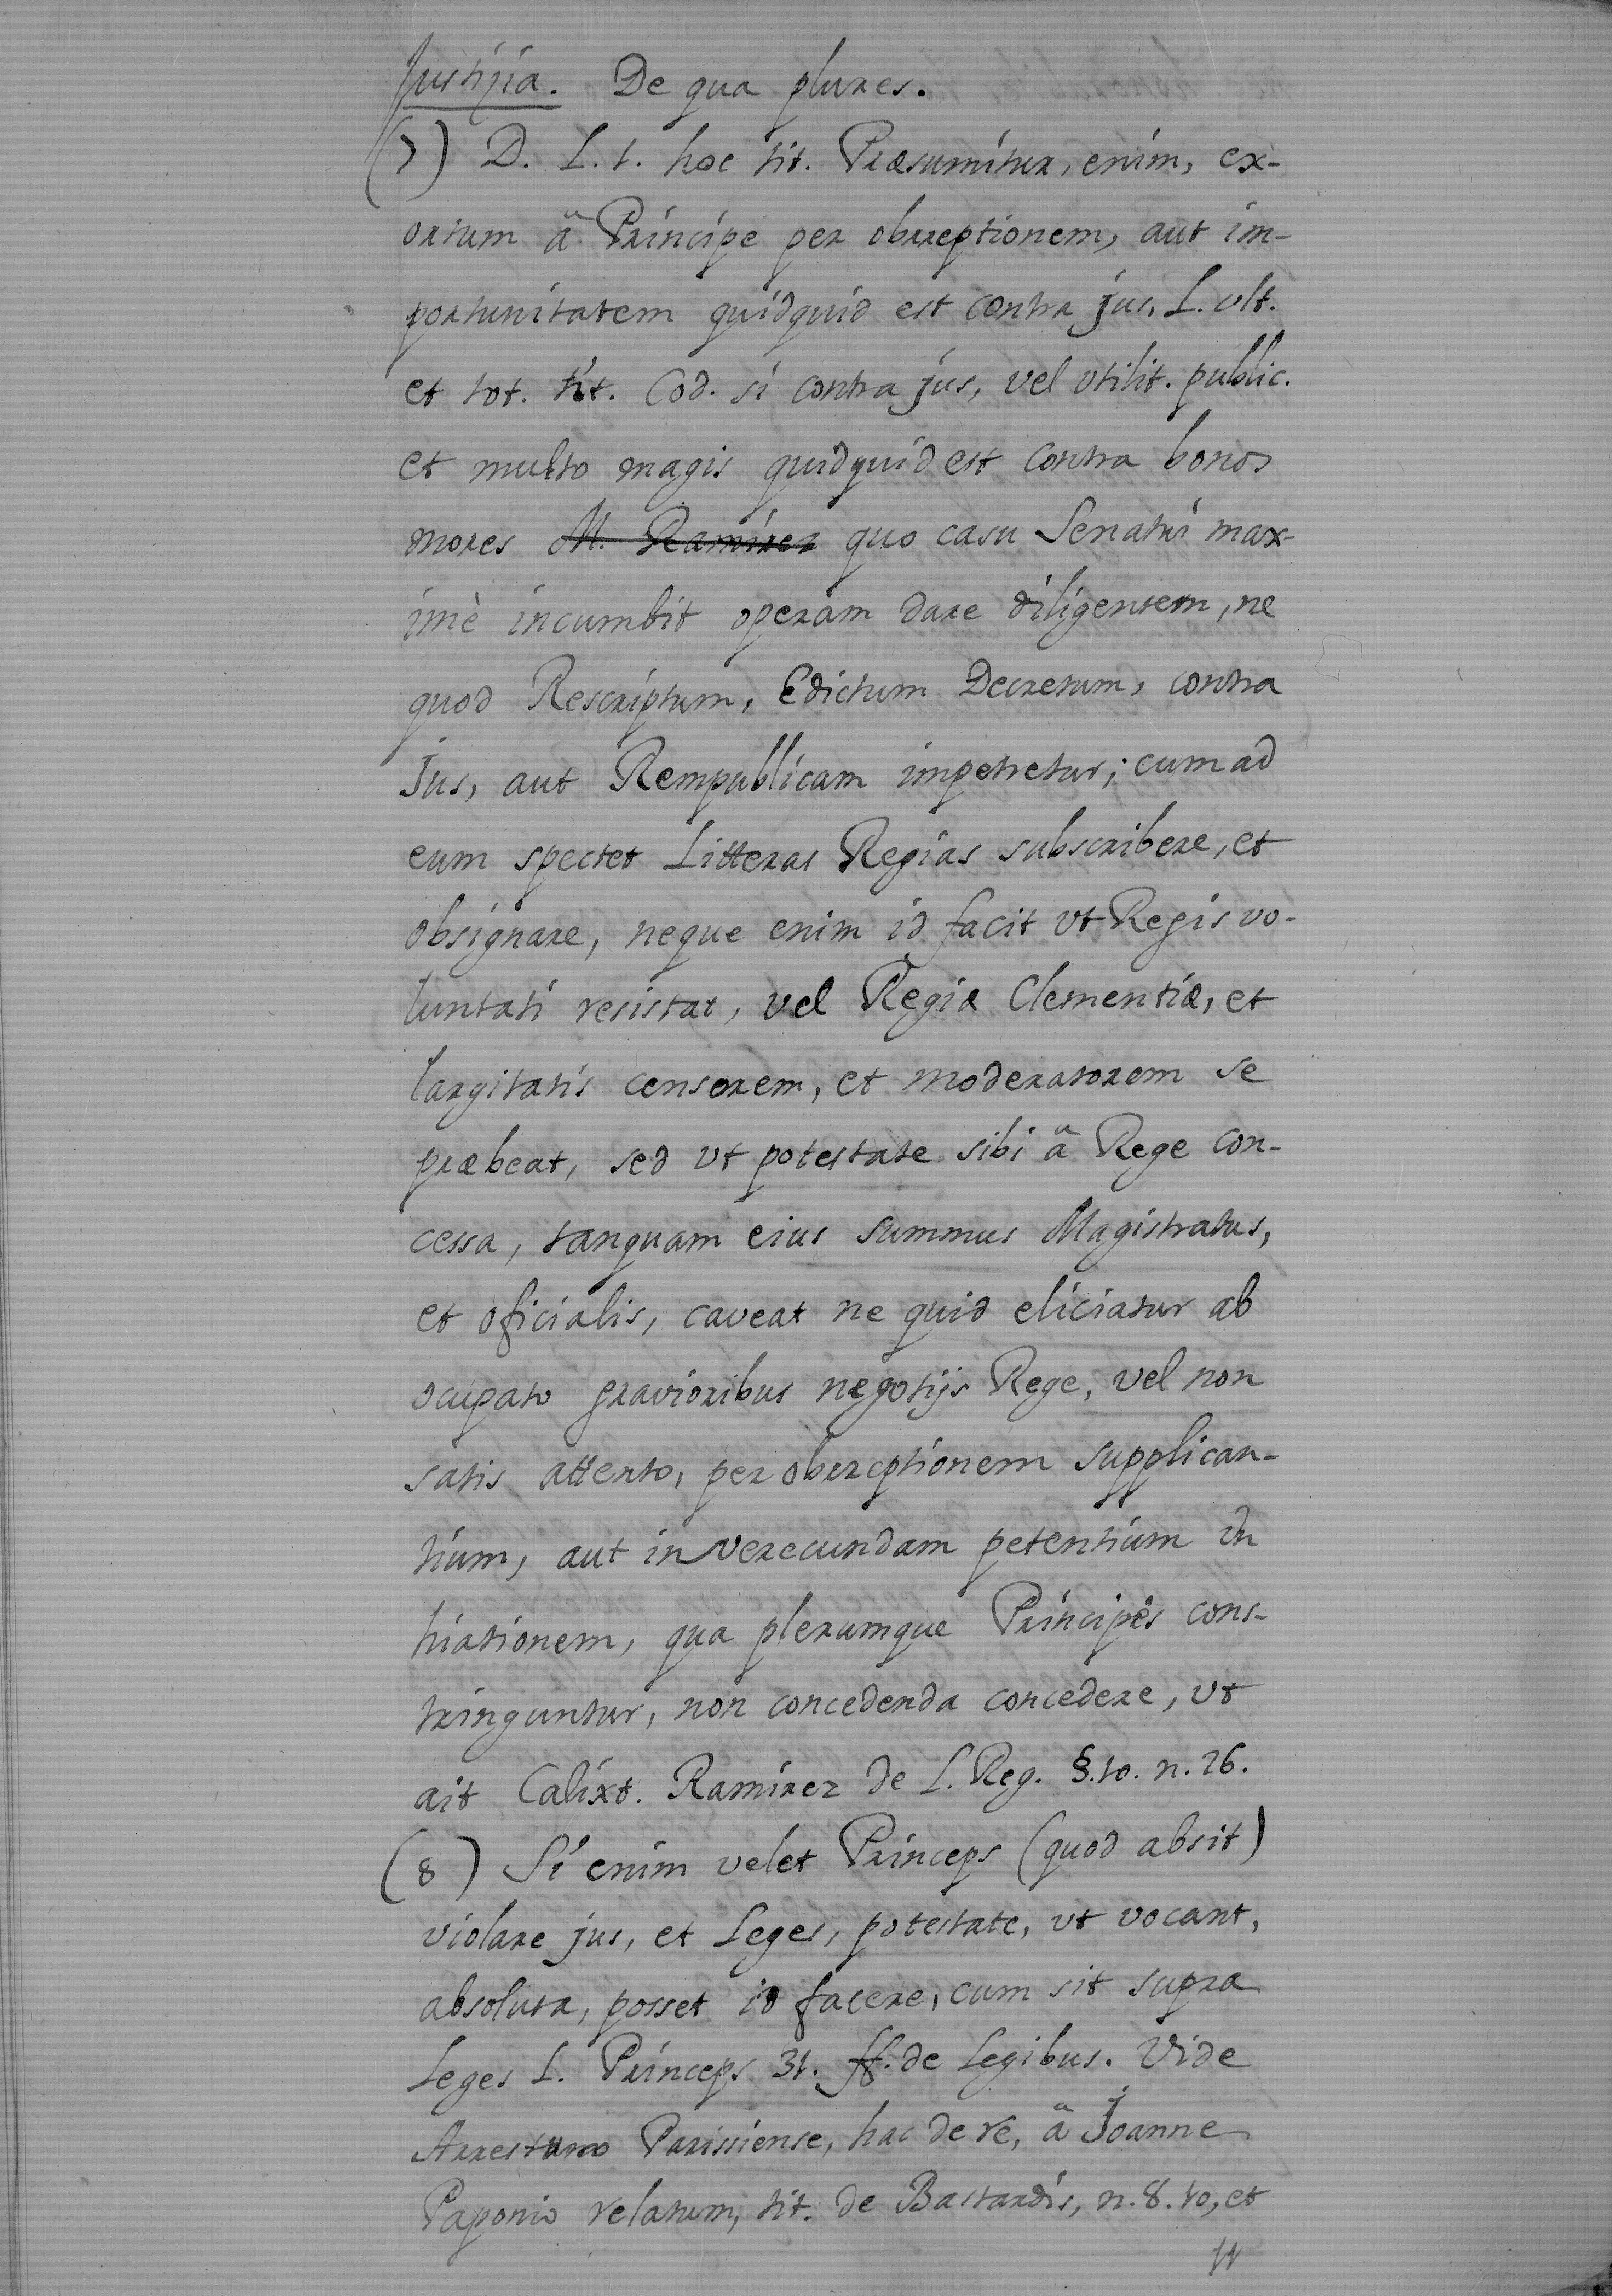 Justizia. De qua plures.
(7) D. L. 1. hoc tit. Præsumitur, enim, ex-
ortum â Principe per obrreptionem, aut im-
portunitatem quidquid est contra jus, L. ult.
et tot. tit. Cod. si contra jus, vel utilit. public.
et multo magis quidquid est contra bonos
mores M. Ramirez quo casu Senatui max-
imè incumbit operam dare diligentem, ne
quod Rescriptum, Edictum Decretum, contra
Jus, aut Rempublicam impetretur; cum ad
eum spectet Litteras Regias subscribere, et
obsignare, neque enim id facit ut Regis vo-
luntati resistat, vel Regiæ Clementiæ, et
largitatis censorem, et moderatorem se
præbeat, sed ut potestate sibi â Rege con-
cessa, tanquam eius summus Magistratus,
et oficialis, caveat ne quid eliciatur ab
ocupato gravioribus negotijs Rege, vel non
satis attento, per obrreptionem supplican-
tium, aut inverecundam petentium in
hiationem, qua plerumque Principes cons-
tringuntur, non concedenda concedere, ut
ait Calixt. Ramirez de L. Reg. §.10. n. 26.
(8) Si enim velet Princeps (quod absit)
violare jus, et Leges, potestate, ut vocant,
absoluta, posset id facere, cum sit supra
Leges L. Princeps 31. ff. de Legibus. Vide
Arrestum Parisiense, hac de re, â Joanne
Paponio relatum, tit. de Bastardis, n. 8. 10, et